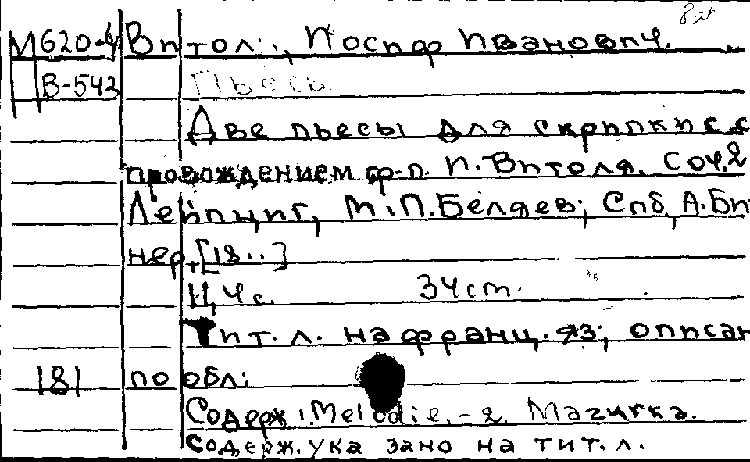 М620-4 Витол, Иосиф Иванович.
В-543 Пьесы
Две пьесы для скрипки с с
провождением ф-п. И. Витоля. Соч. 2
Лейпциг, М.П. Беляев; Спб, А. Би
нер, [18..]
4 с. 34 cm.
Тит. л. на франц. яз; описан
181 по обл.
Содерж: Melodie. - 2. Мазурка.
Содерж. указано на тит. л.